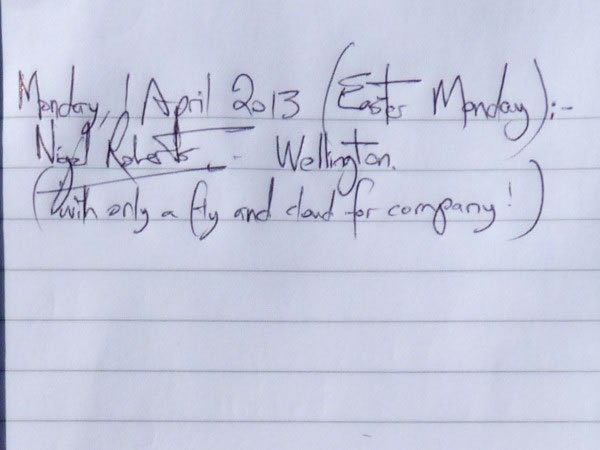 Monday, 1 April 2013 (Easter Monday):-
Nigel Roberts, - Wellington.
(with only a fly and cloud for company!)